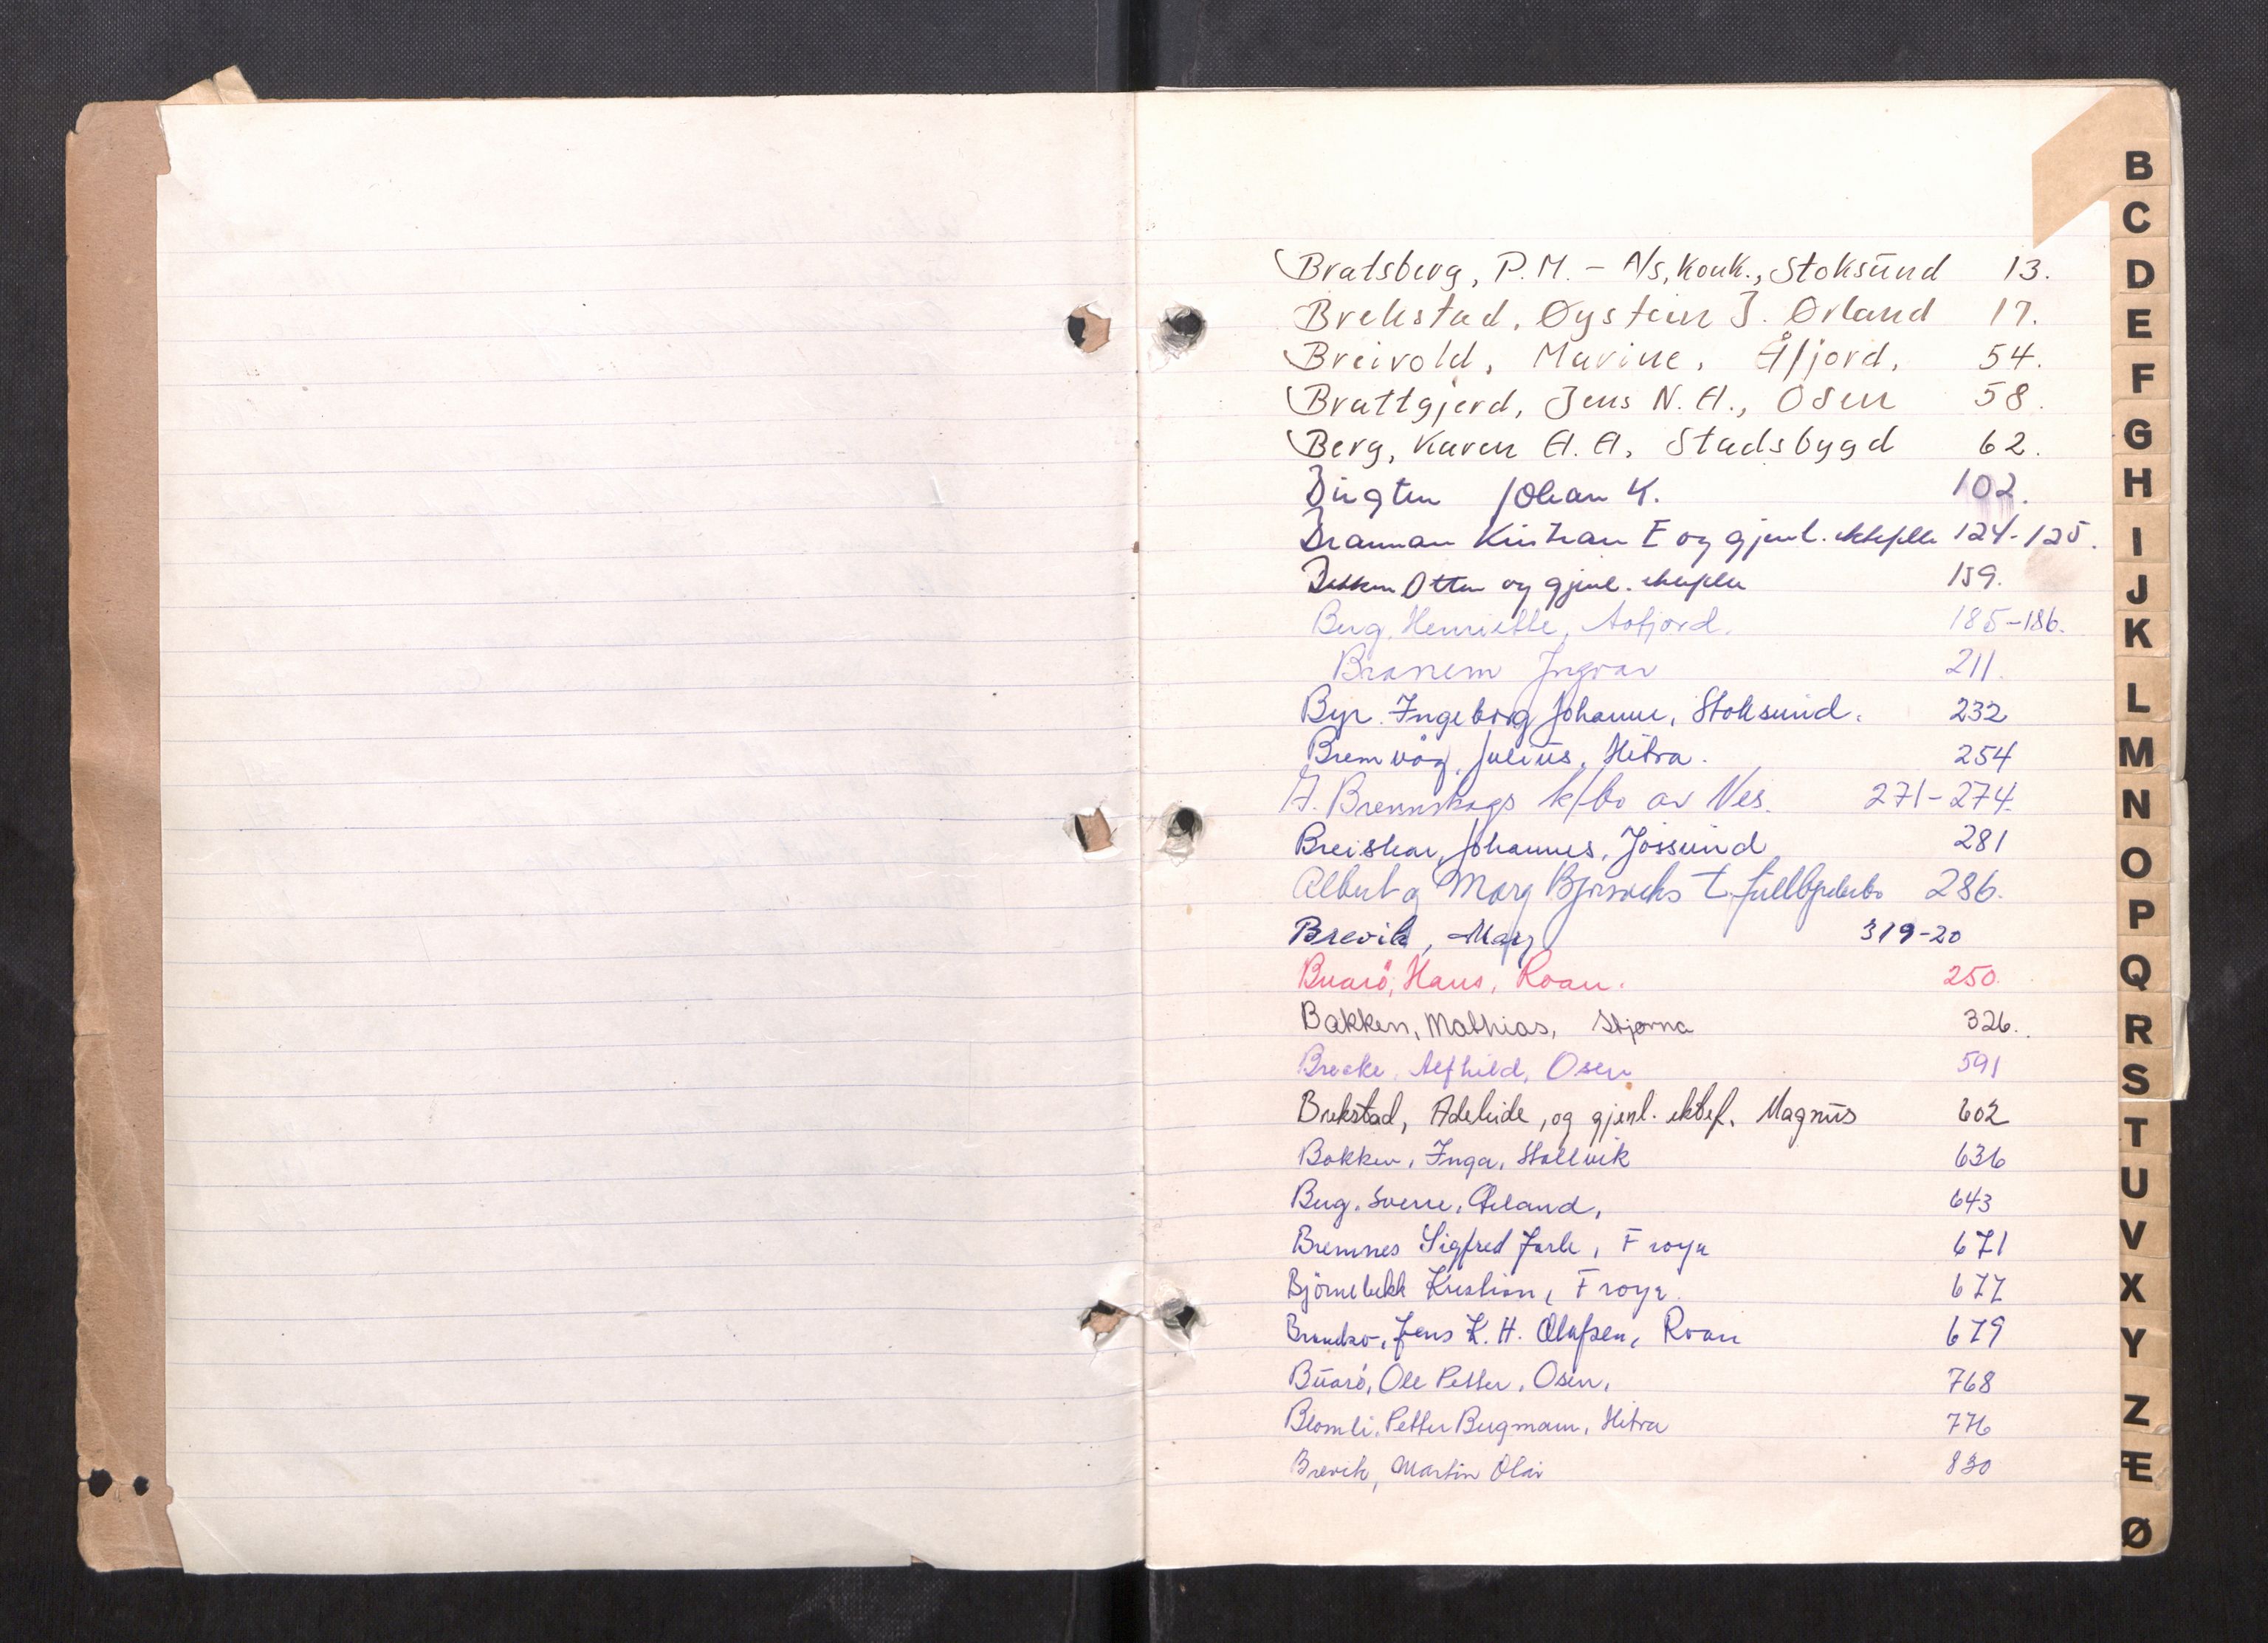 Bratsberg, P.M. - A/s, konk., Stoksund 13.
Brekstad, Øystein J. Ørland 17.
Breivold, Marine, Åfjord, 54.
Brattgjerd, Jens N. A., Osen 58.
Berg, Karen A. A, Stadsbygd 62.
Johan K. 102.
Kristian E og gjenl. ektefelle 124-125.
Otto og gjenl. ektefelle 159.
Berg, Henriette, Aafjord. 185-186.
Branem Ingvar 211.
Bye. Ingeborg Johanne, Stoksund. 232
Bremvåg, Julius, Hitra. 254
Brennskags k/bo av Nes. 271-274.
Breiskar, Johannes, Jøssund 281
Albert og Marg 286.
Brevik, Marg 319-20
Buarö, Hans, Roan. 250.
Bakken, Mathias, Stjørna 326.
Brecke, Alfhild, Osen 591
Brekstad, Adeleide, og gjenl. ektef. Magnus 602
Bakken, Inga, Hallvik 636
Berg. Sverre, Ørland, 643
Bremnes Sigfred Jarle, Frøya 671
Björnebekk Kristian, Frøya. 677
Jens K. H. Olafsen, Roan 679
Buarö, Ole Petter, Osen, 768
Blomli, Petter Bergmann, Hitra 776
Brevik, Martin Olai 830
B
C
D
E
F
G
H
I
J
K
L
M
N
O
P
Q
R
S
T
U
V
X
Y
Z
Æ
Ø